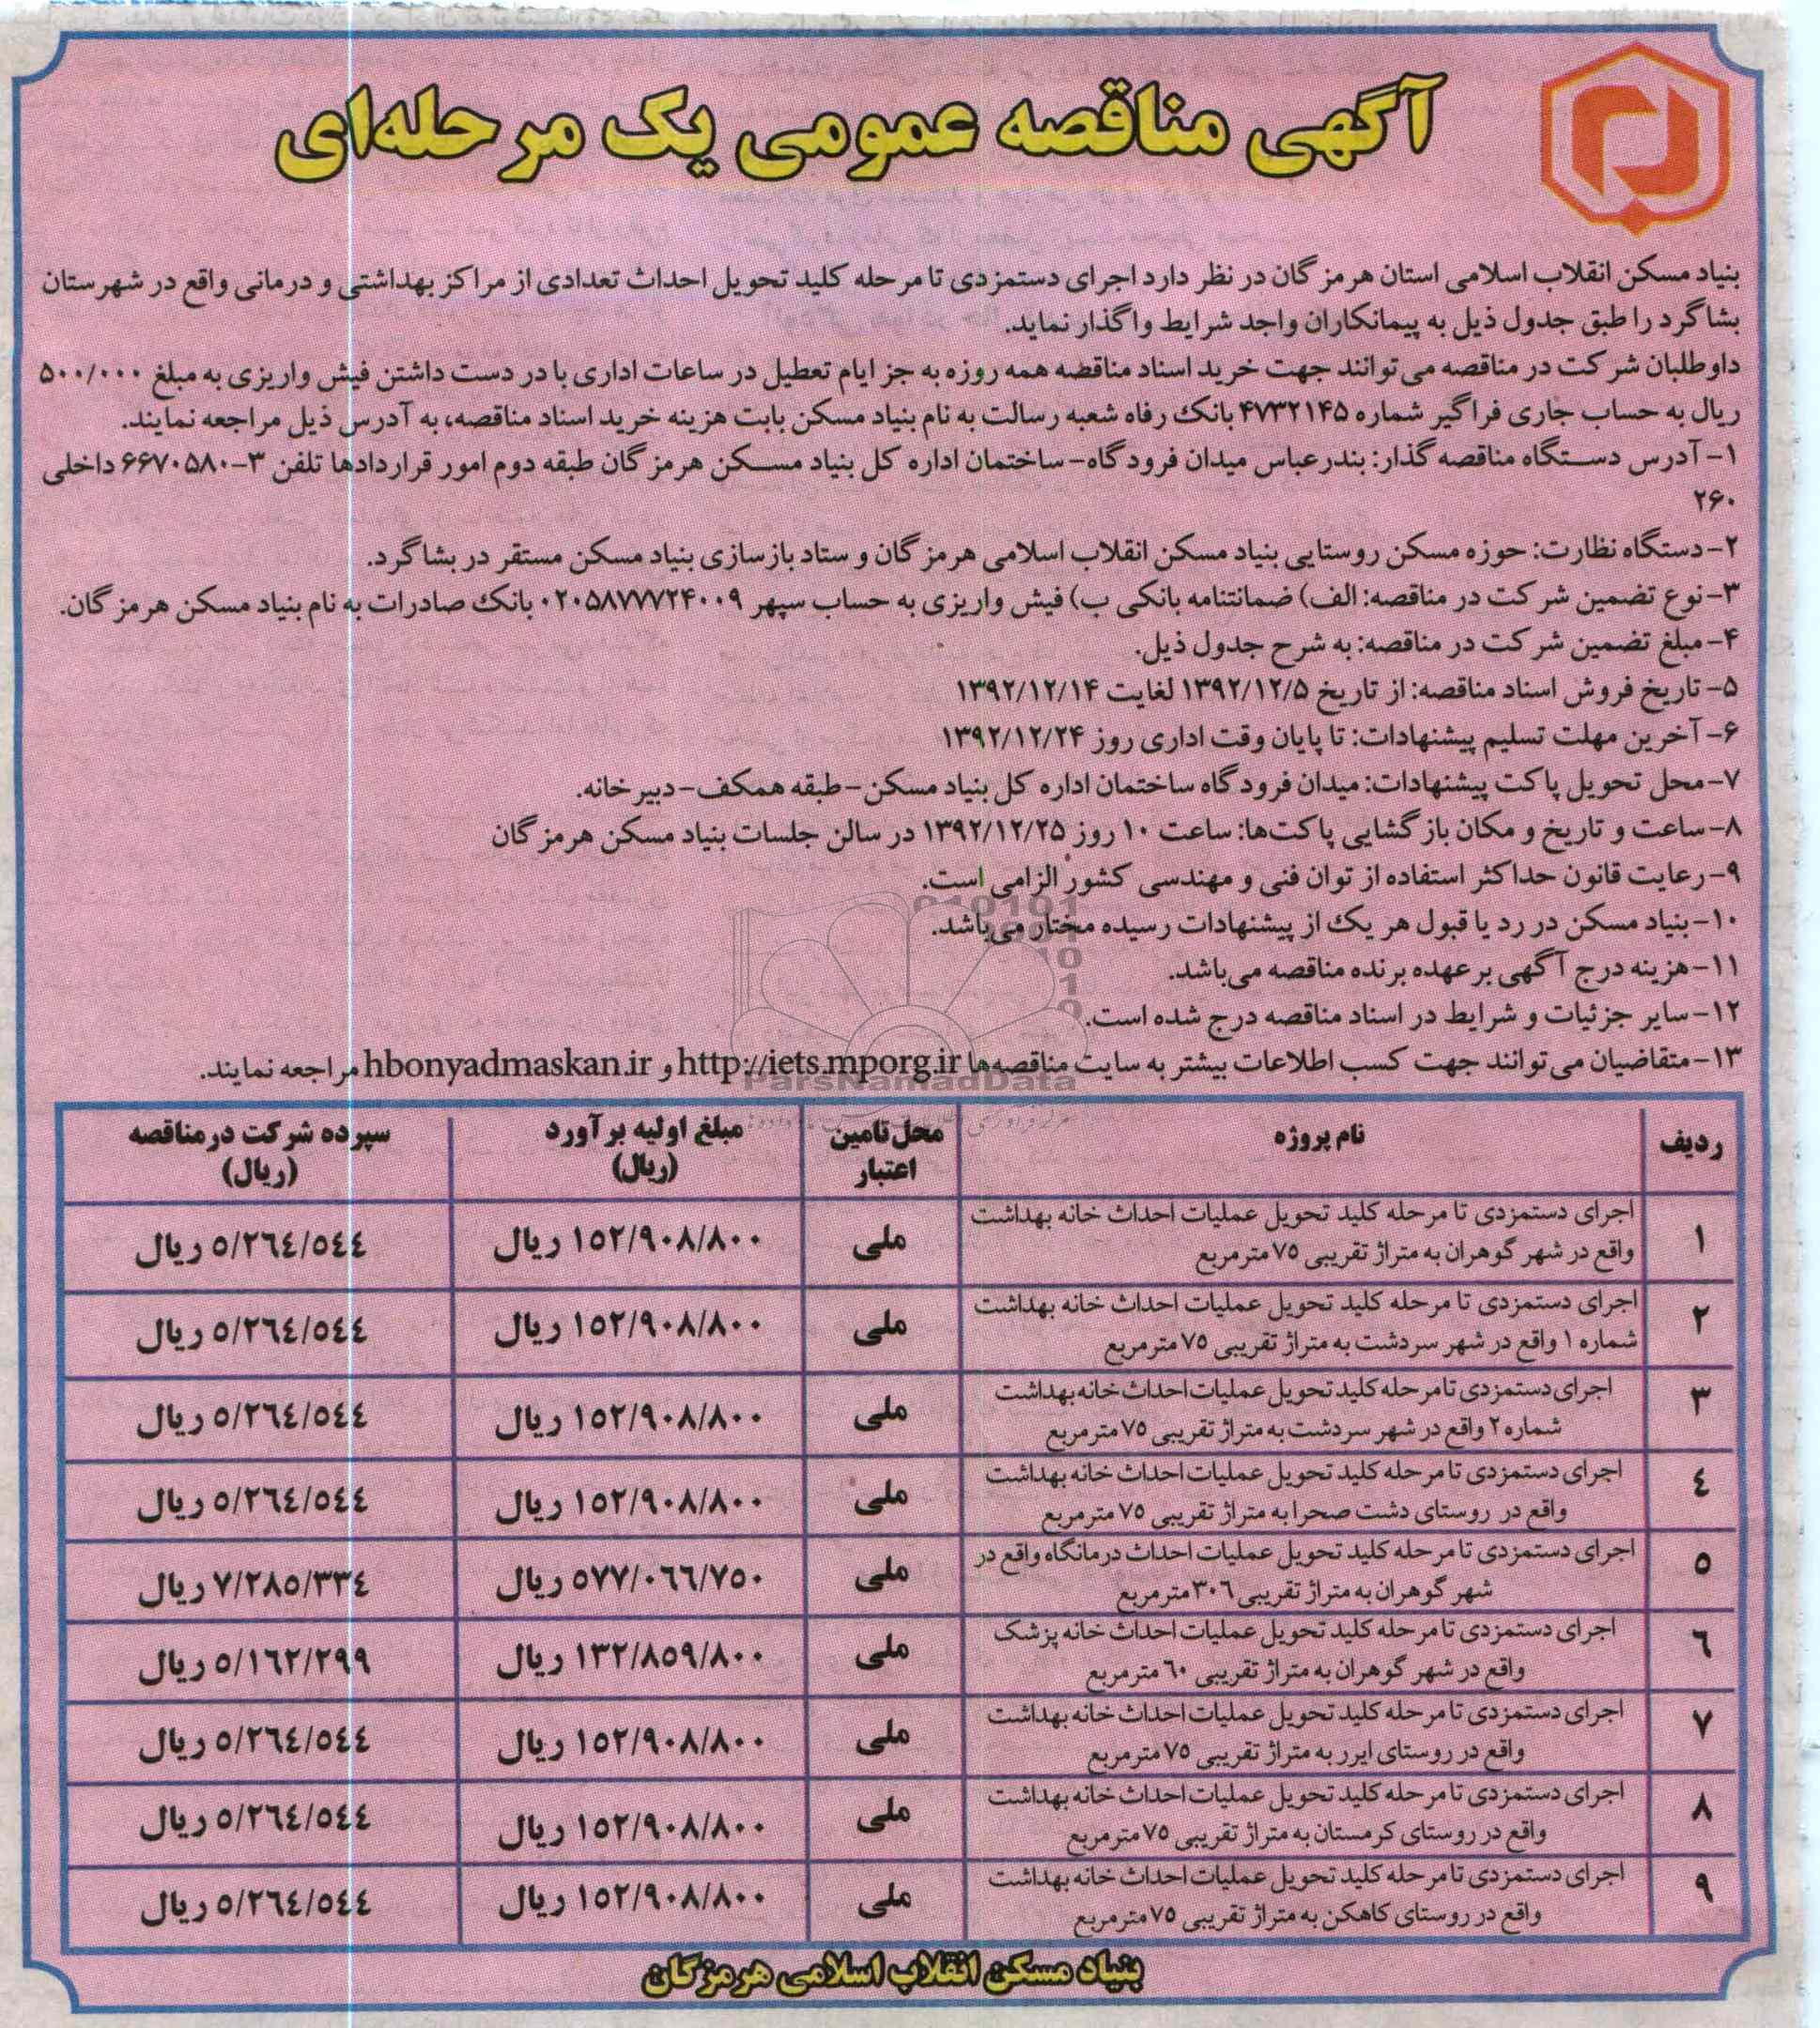 آگهی مناقصه عمومی یک مرحله‌ای
بنیاد مسکن انقلاب اسلامی استان هرمزگان در نظر دارد اجرای دستمزدی تا مرحله کلید تحویل احداث تعدادی از مراکز بهداشتی و درمانی واقع در شهرستان
بشاگرد را طبق جدول ذیل به پیمانکاران واجد شرایط واگذار نماید.
داوطلبان شرکت در مناقصه می‌توانند جهت خرید اسناد مناقصه همه روزه به جز ایام تعطیل در ساعات اداری با در دست داشتن فیش واریزی به مبلغ ۵۰۰/۰۰۰
ریال به حساب جاری فراگیر شماره ۴۷۳۲۱۴۵ بانک رفاه شعبه رسالت به نام بنیاد مسکن بابت هزینه خرید اسناد مناقصه، به آدرس ذیل مراجعه نمایند.
۱- آدرس دستگاه مناقصه گذار: بندرعباس میدان فرودگاه- ساختمان اداره کل بنیاد مسکن هرمزگان طبقه دوم امور قراردادها تلفن ۳-۶۶۷۰۵۸۰ داخلی
۲۶۰
۲- دستگاه نظارت: حوزه مسکن روستایی بنیاد مسکن انقلاب اسلامی هرمزگان و ستاد بازسازی بنیاد مسکن مستقر در بشاگرد.
۳- نوع تضمین شرکت در مناقصه: الف) ضمانتنامه بانکی ب) فیش واریزی به حساب سپهر ۰۲۰۵۸۷۷۷۲۴۰۰۹ بانک صادرات به نام بنیاد مسکن هرمزگان.
۴- مبلغ تضمین شرکت در مناقصه: به شرح جدول ذیل.
۵- تاریخ فروش اسناد مناقصه: از تاریخ ۱۳۹۲/۱۲/۵ لغایت ۱۳۹۲/۱۲/۱۴
۶- آخرین مهلت تسلیم پیشنهادات: تا پایان وقت اداری روز ۱۳۹۲/۱۲/۲۴
۷- محل تحویل پاکت پیشنهادات: میدان فرودگاه ساختمان اداره کل بنیاد مسکن- طبقه همکف- دبیرخانه.
۸- ساعت و تاریخ و مکان بازگشایی پاکت‌ها: ساعت ۱۰ روز ۱۳۹۲/۱۲/۲۵ در سالن جلسات بنیاد مسکن هرمزگان
۹- رعایت قانون حداکثر استفاده از توان فنی و مهندسی کشور الزامی است.
۱۰- بنیاد مسکن در رد یا قبول هر یک از پیشنهادات رسیده مختار می‌باشد.
۱۱- هزینه درج آگهی بر عهده برنده مناقصه می‌باشد.
۱۲- سایر جزئیات و شرایط در اسناد مناقصه درج شده است.
۱۳- متقاضیان می‌توانند جهت کسب اطلاعات بیشتر به سایت مناقصه‌ها http://iets.mporg.ir و hbonyadmaskan.ir مراجعه نمایند.
ParsNamadData
ردیف | نام پروژه | محل تامین اعتبار | مبلغ اولیه برآورد (ریال) | سپرده شرکت در مناقصه (ریال)
۱ | اجرای دستمزدی تا مرحله کلید تحویل عملیات احداث خانه بهداشت واقع در شهر گوهران به متراژ تقریبی ۷۵ مترمربع | ملی | ۱۵۲/۹۰۸/۸۰۰ ریال | ۵/۲٦٤/۵٤٤ ریال
۲ | اجرای دستمزدی تا مرحله کلید تحویل عملیات احداث خانه بهداشت شماره ۱ واقع در شهر سردشت به متراژ تقریبی ۷۵ مترمربع | ملی | ۱۵۲/۹۰۸/۸۰۰ ریال | ۵/۲٦٤/۵٤٤ ریال
۳ | اجرای دستمزدی تا مرحله کلید تحویل عملیات احداث خانه بهداشت شماره ۲ واقع در شهر سردشت به متراژ تقریبی ۷۵ مترمربع | ملی | ۱۵۲/۹۰۸/۸۰۰ ریال | ۵/۲٦٤/۵٤٤ ریال
٤ | اجرای دستمزدی تا مرحله کلید تحویل عملیات احداث خانه بهداشت واقع در روستای دشت صحرا به متراژ تقریبی ۷۵ مترمربع | ملی | ۱۵۲/۹۰۸/۸۰۰ ریال | ۵/۲٦٤/۵٤٤ ریال
۵ | اجرای دستمزدی تا مرحله کلید تحویل عملیات احداث درمانگاه واقع در شهر گوهران به متراژ تقریبی ۳۰٦ مترمربع | ملی | ۵۷۷/۰٦٦/۷۵۰ ریال | ۷/۲۸۵/۳۳٤ ریال
٦ | اجرای دستمزدی تا مرحله کلید تحویل عملیات احداث خانه پزشک واقع در شهر گوهران به متراژ تقریبی ٦۰ مترمربع | ملی | ۱۳۲/۸۵۹/۸۰۰ ریال | ۵/۱٦۲/۲۹۹ ریال
۷ | اجرای دستمزدی تا مرحله کلید تحویل عملیات احداث خانه بهداشت واقع در روستای ایرر به متراژ تقریبی ۷۵ مترمربع | ملی | ۱۵۲/۹۰۸/۸۰۰ ریال | ۵/۲٦٤/۵٤٤ ریال
۸ | اجرای دستمزدی تا مرحله کلید تحویل عملیات احداث خانه بهداشت واقع در روستای کرمستان به متراژ تقریبی ۷۵ مترمربع | ملی | ۱۵۲/۹۰۸/۸۰۰ ریال | ۵/۲٦٤/۵٤٤ ریال
۹ | اجرای دستمزدی تا مرحله کلید تحویل عملیات احداث خانه بهداشت واقع در روستای کاهکن به متراژ تقریبی ۷۵ مترمربع | ملی | ۱۵۲/۹۰۸/۸۰۰ ریال | ۵/۲٦٤/۵٤٤ ریال
بنیاد مسکن انقلاب اسلامی هرمزگان